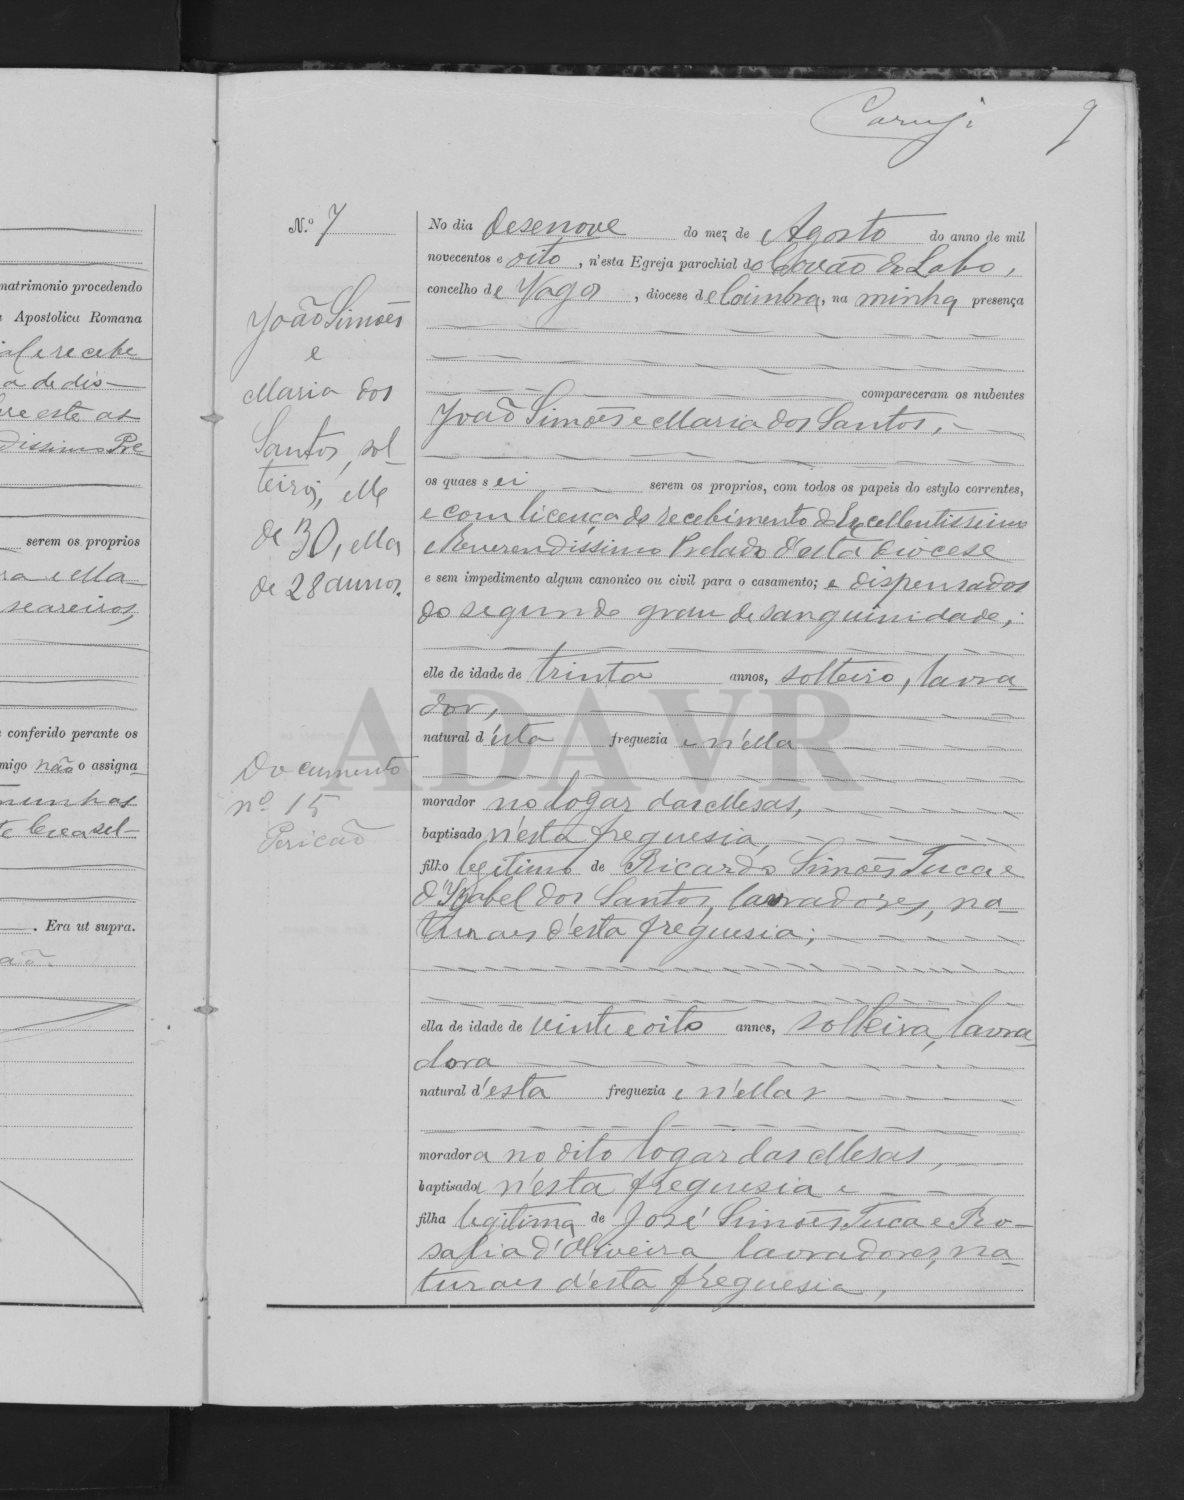 Caruji
9
matrimonio procedendo
Apostolica Romana
al e recebe-
a de dis-
este as
dissimo Pre-
serem os proprios
ra e Ma-
seareiros,
conferido perante os
migo não o assigna-
munhas
. Era ut supra.
N.º 7
João Simões
e
Maria dos
Santos, sol-
teiros, elle
de 30, ella
de 28 annos.
Documento
nº 15
No dia desenove do mez de Agosto do anno de mil
novecentos e oito, n'esta Egreja parochial do Covão do Lobo,
concelho de Vagos, diocese de Coimbra, na minha presença
compareceram os nubentes
João Simões e Maria dos Santos,
os quaes sei serem os proprios, com todos os papeis do estylo correntes,
e com licença de recebimento do Excellentissimo
e Reverendissimo Prelado d'esta Diocese
e sem impedimento algum canonico ou civil para o casamento; e dispensados
do segundo grau de sanguinidade;
elle de idade de trinta annos, solteiro, lavra-
dor,
natural d'esta freguezia e n'ella
morador no logar das Mesas,
baptisado n'esta freguesia,
filho legitimo de Ricardo Simões Tuca e
d'Isabel dos Santos, lavradores, na-
turaes d'esta freguesia;
ella de idade de vinte e oito annos, solteira, lavra-
dora
natural d'esta freguezia e n'ella
moradora no dito logar das Mesas,
baptisada n'esta freguesia e
filha legitima de José Simões Tuca e Ro-
salia d'Oliveira lavradores, na-
turaes d'esta freguesia,
ADAVR